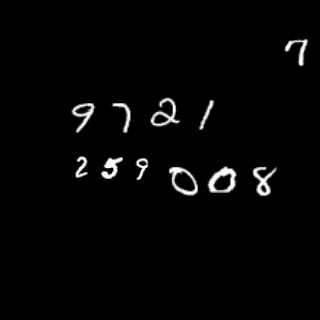 7
9721
259 008